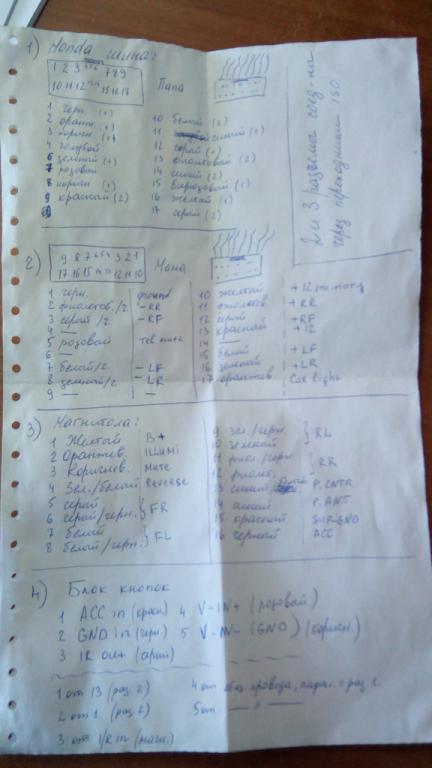 1) Honda шина:
1 2 3 4 5 6 7 8 9
10 11 12 13 14 15 16 17
Папа
1 черн. (1)
2 оранж. (1)
3 коричн (1)
4 голубой
6 зеленый (1)
7 розовый
8 коричн (2)
9 красный (2)
10 белой (2)
11 синий (1)
12 серой (1)
13 фиолтовой (2)
14 синий (2)
15 бирюзовый (1)
16 желтый (1)
17 серой (2)
2 и 3 разъемы соед-ны
через переходники ISO
2)
9 8 7 6 5 4 3 2 1
17 16 15 14 13 12 11 10
Мама
1 черн. ground
2 фиолетов./2 -RR
3 серой /2 -RF
4 —
5 розовой tel mute
6 —
7 белой/2 -LF
8 зеленой/2 -LR
9 —
10 желтой
11 фиолетов +RR
12 серой +RF
13 красной +12
14 —
15 белой +LF
16 зеленой +LR
17 оранжев Car light
3) Магнитола:
1 Желтый B+
2 Оранжев. ILLUMI
3 Коричнев. Mute
4 Зел./белой Reverse
5 серой
6 серой/черн. } FR
7 белой
8 белой/черн. } FL
9 Зел./черн.
10 зеленой } RL
11 фиол./черн.
12 фиолет. } RR
13 синий белой P.CNTR
14 синий P.ANT
15 красный SURGND
16 черный ACC
4) Блок кнопок
1 ACC in (красн)
2 GND in (черн.)
3 IR out (серой)
4 V-IN+ (розовой)
5 V-IN- (GND) (коричн.)
1 от 13 (раз. 2)
2 от 1 (раз. 2)
3 от I/R in (магн.)
4 от общ. провода, парал. с раз 1.
5 от — " —